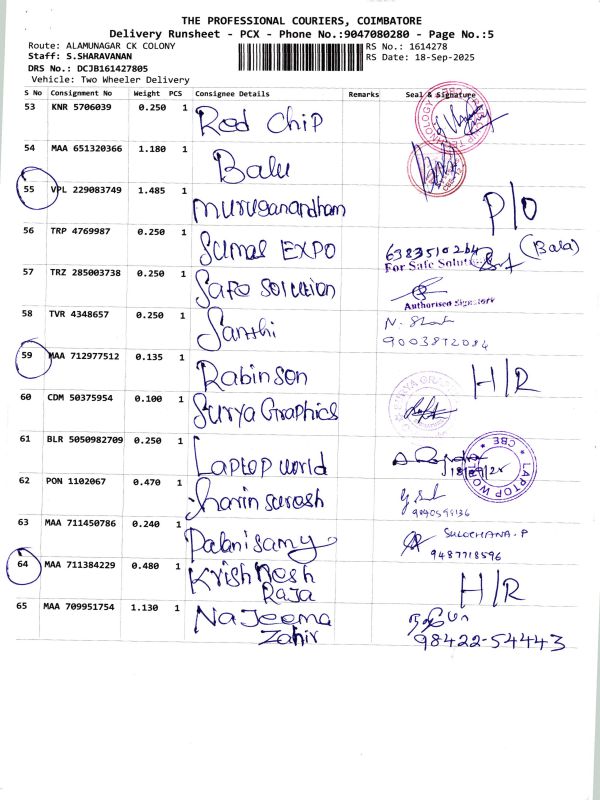 THE PROFESSIONAL COURIERS, COIMBATORE
Delivery Runsheet - PCX - Phone No.:9047080280 - Page No.:5
Route: ALAMUNAGAR CK COLONY
RS No.: 1614278
Staff: S.SHARAVANAN
RS Date: 18-Sep-2025
DRS No.: DCJB161427805
Vehicle: Two Wheeler Delivery
S No Consignment No Weight PCS Consignee Details Remarks Seal & Signature
53 KNR 5706039 0.250 1 Red Chip
54 MAA 651320366 1.180 1 Balu
55 VPL 229083749 1.485 1 Muruganandham P/O
56 TRP 4769987 0.250 1 Sumas EXPO 6383510264 (Bala)
For Safe Solut
57 TRZ 285003738 0.250 1 Safe Solution
Authorised Signatory
58 TVR 4348657 0.250 1 Santhi
9003872084
59 MAA 712977512 0.135 1 Rabinson H/R
60 CDM 50375954 0.100 1 Surya Graphics
61 BLR 5050982709 0.250 1 Laptop world
18/09/25
LAPTOP WORLD * CBE *
62 PON 1102067 0.470 1 Sharin suresh
63 MAA 711450786 0.240 1 Palanisamy SULOCHANA.P
9487718596
64 MAA 711384229 0.480 1 Krishnesh Raja H/R
65 MAA 709951754 1.130 1 Najeema Zahir
98422-54443